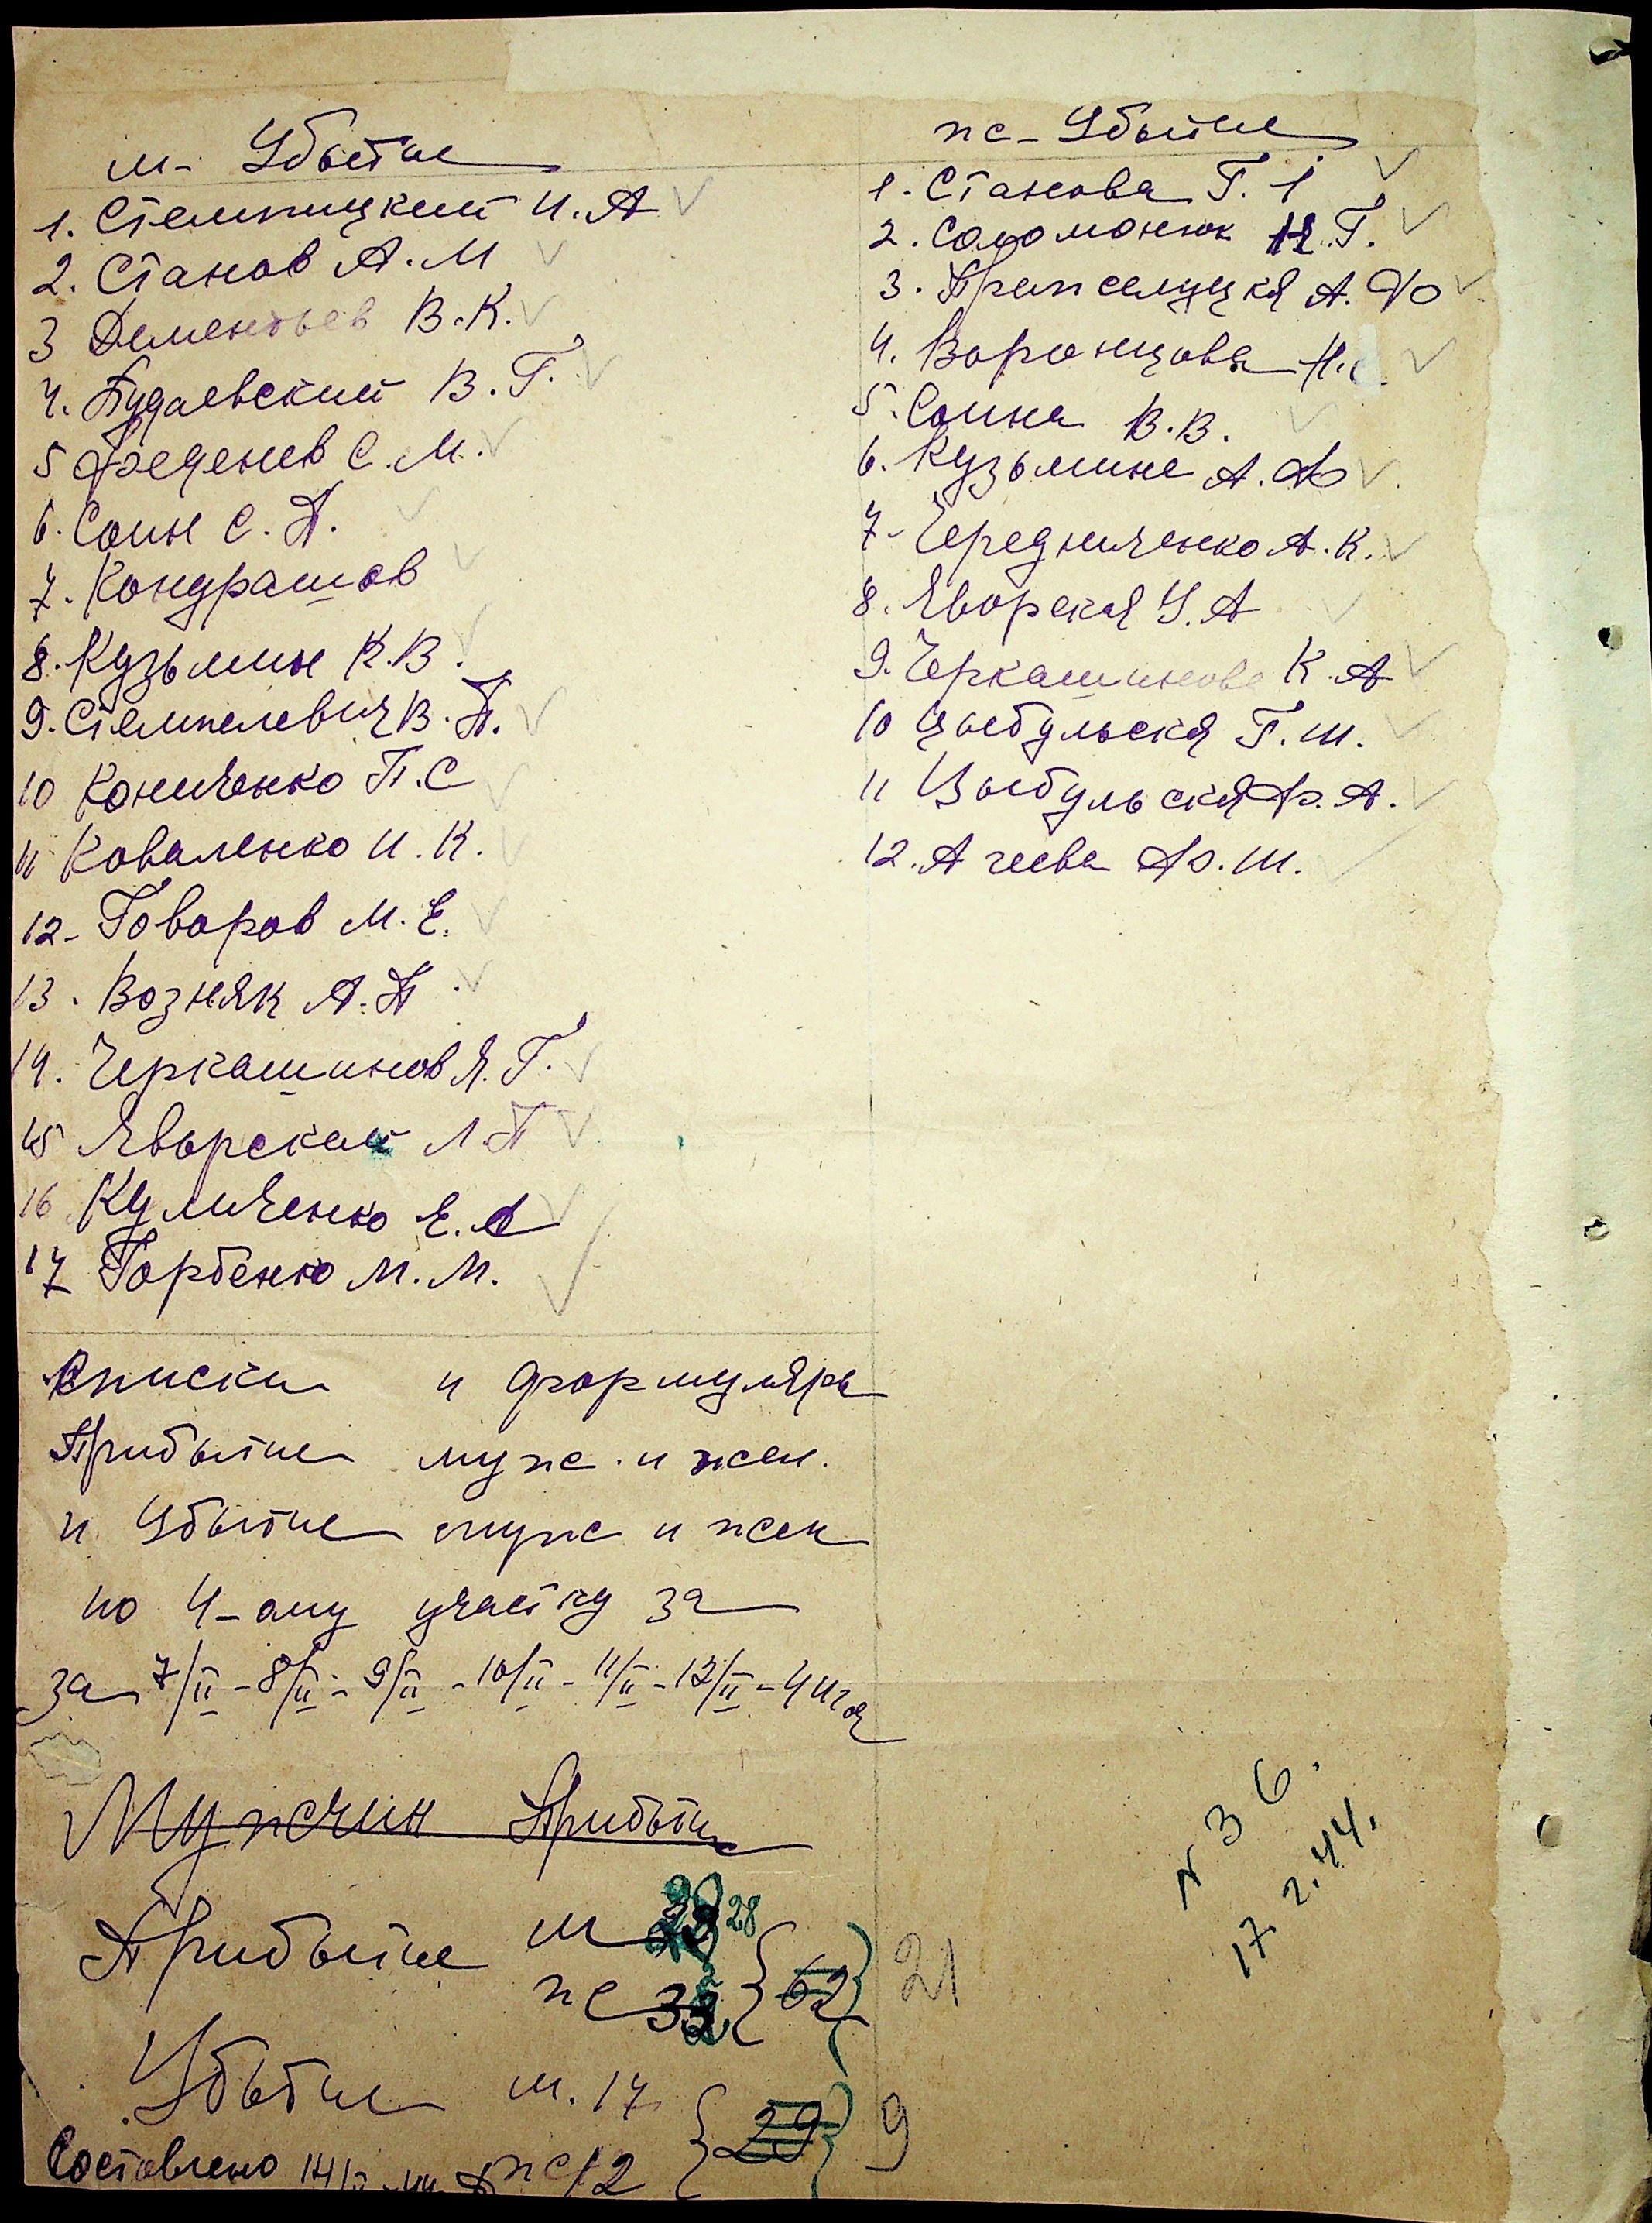 м- Убытие
1. Стемпицкий И. А
2. Станов А. М
3 Дементьев В. К.
4. Будаевский В. Г.
5 Феденев С. М.
6. Соин С. П.
7. Кондрашов
8. Кузьмин К. В.
9. Стемпелевич В. П.
10 Кониченко П. С
11 Коваленко И. К.
12- Говоров М. Е.
13. Возняк А. П.
14. Черкашинов Я. Г.
15 Яворский Л. П
16 Куличенко Е. А
17 Горбенко М. М.
ж- Убытие
1. Станова Г. І
2. Соломонюк Н. Г.
3. А. Ф
4. Воронцова Н.
5. Соина В. В.
6. Кузьмина А. Ф
7- Чередниченко А. К.
8. Яворская У. А
9. Черкашинова К. А
10 Цыбульская Г. Ш.
11 Цыбульская Ф. А.
12. Агеева Ф. Ш.
Списки и формуляры
Прибытие муж. и жен.
и Убытие муж и жен
по 4-ому участку за
за 7/II - 8/II - 9/II - 10/II - 11/II - 12/II - 44 год
Мужчин Прибыт
Прибытие м 28
ж 62 21
Убытие м. 17
ж 12 29 9
Составлено 14/II-44
N 36.
17. 2. 44.